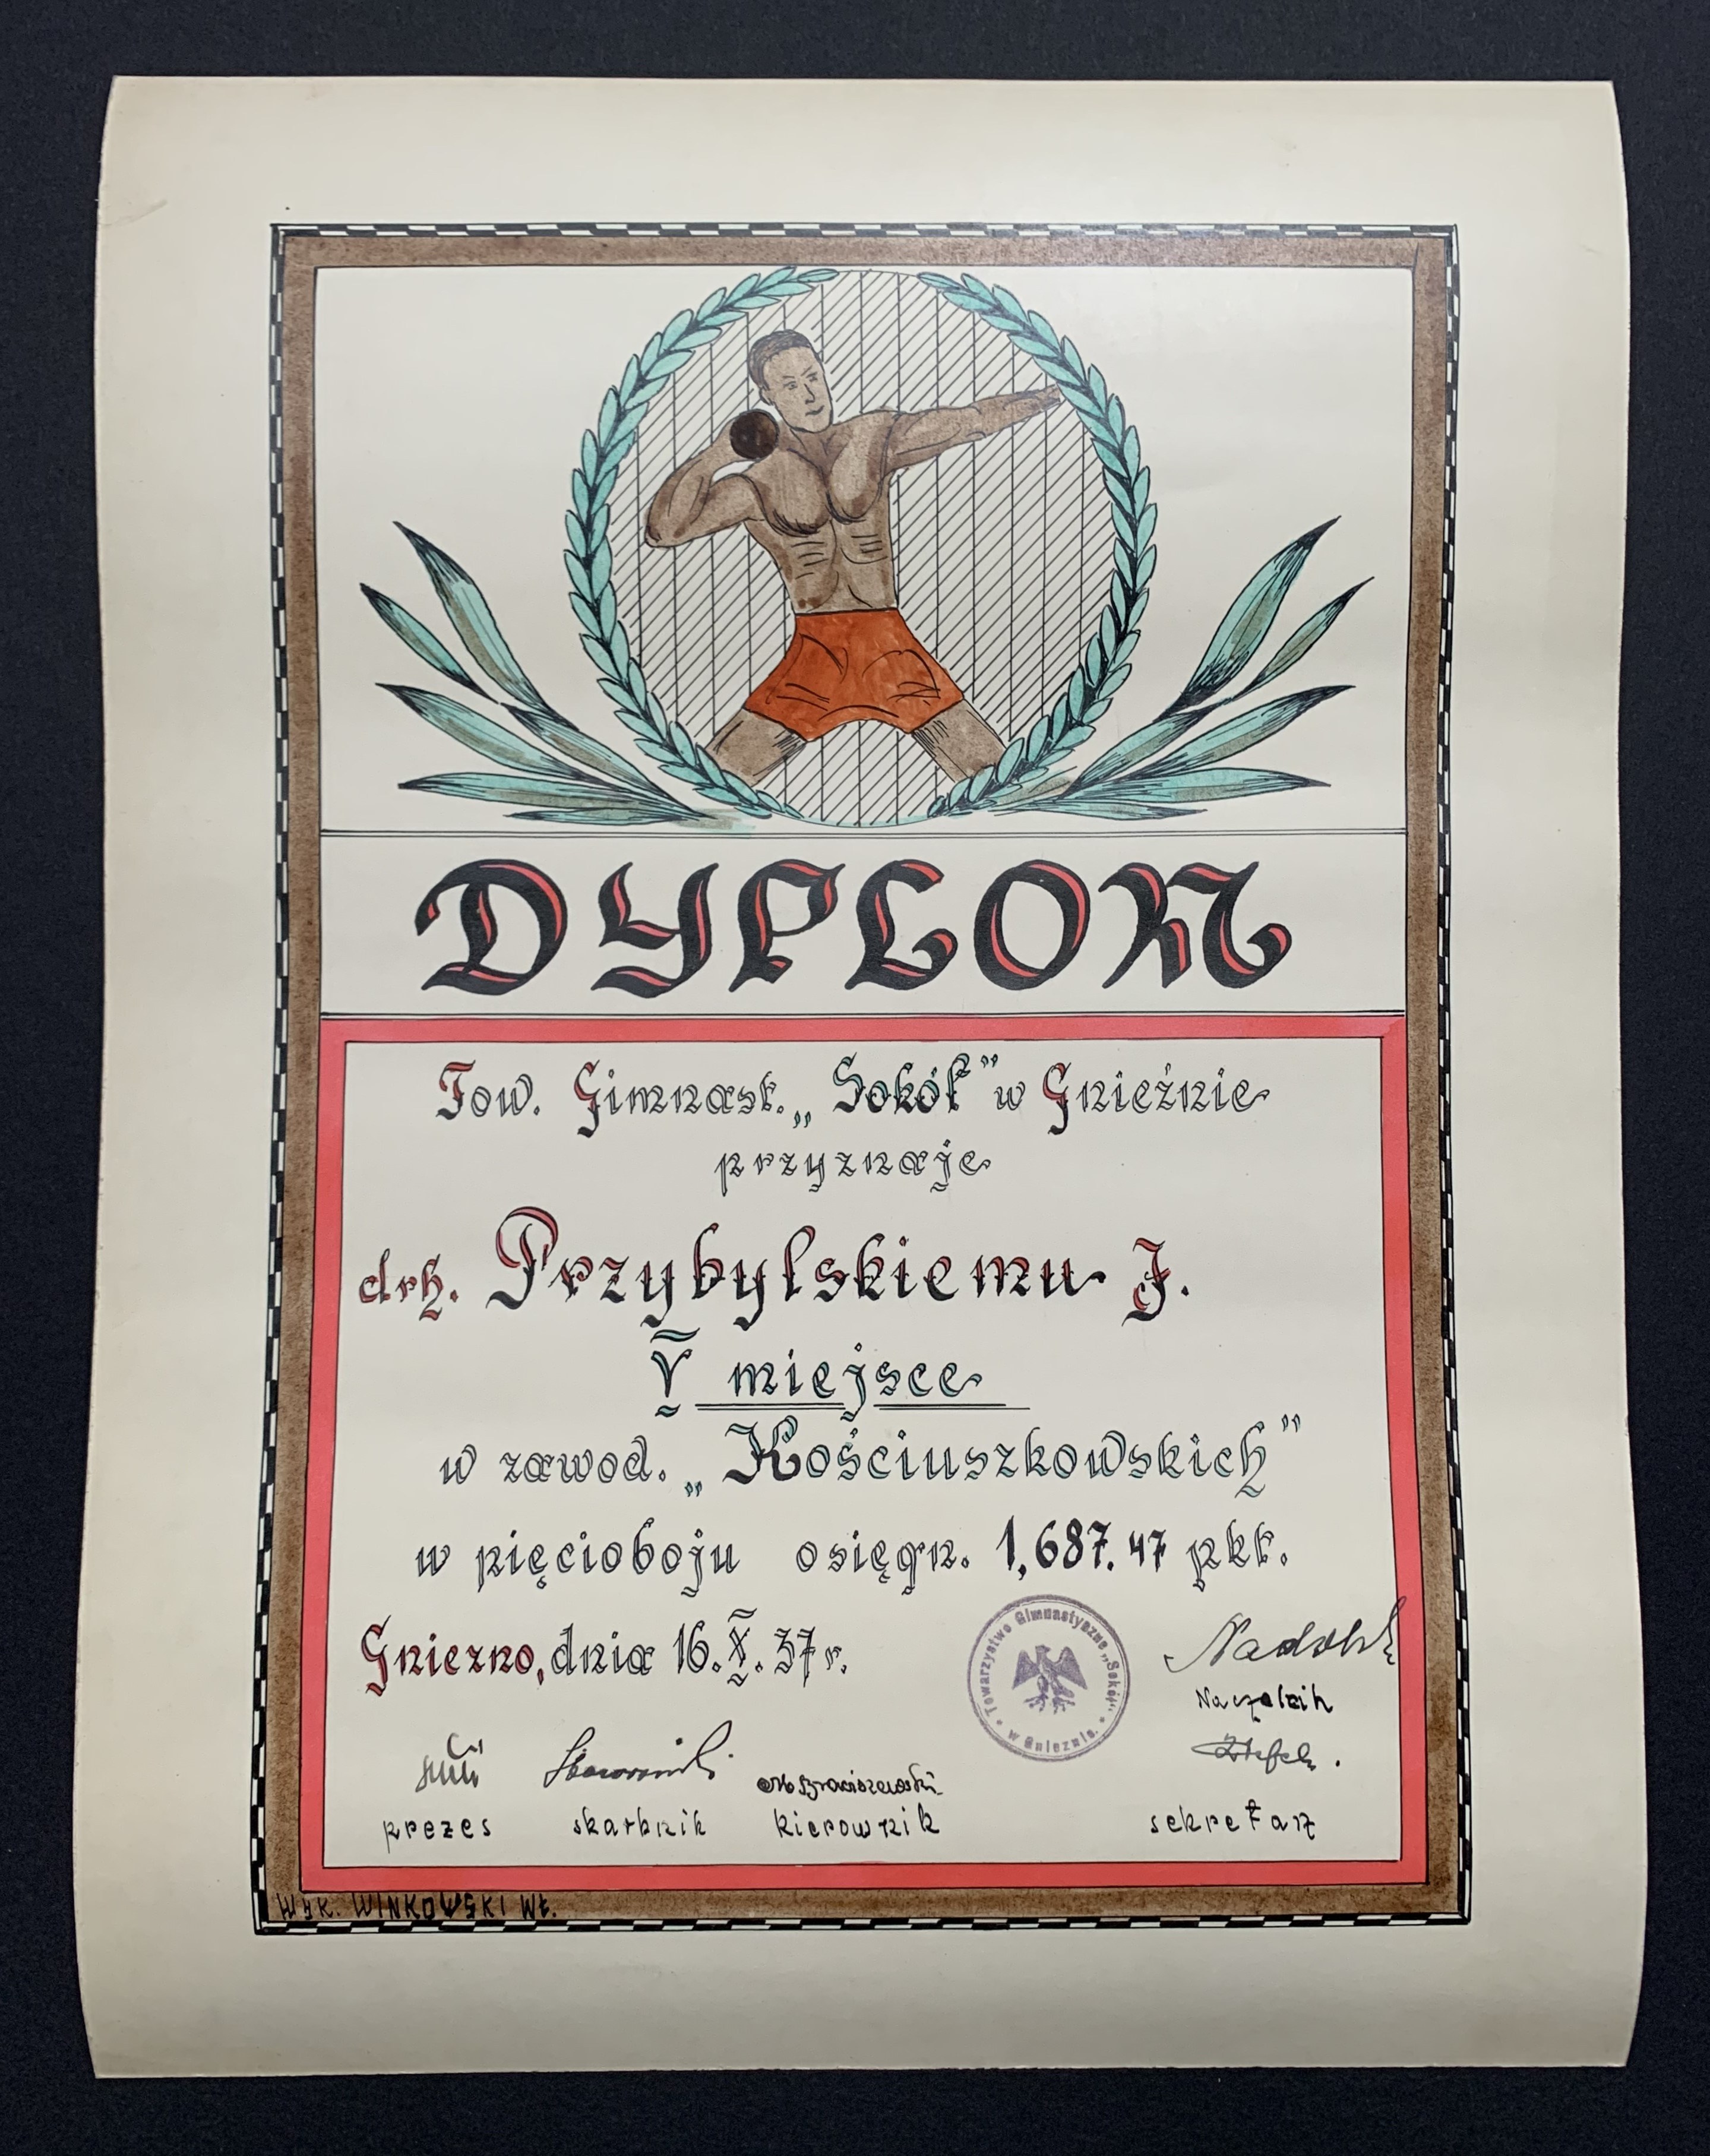 DYPLOM
Tow. Gimnast. „Sokół” w Gnieźnie
przyznaje
drh. Przybylskiemu J.
V miejsce
w zawod. „Kościuszkowskich”
w pięcioboju osiągn. 1,687.47 pkt.
Gniezno, dnia 16.X.37 r.
Towarzystwo Gimnastyczne „Sokół”
w Gnieźnie.
Naczelnik
prezes skarbnik kierownik sekretarz
WYK. WINKOWSKI WŁ.